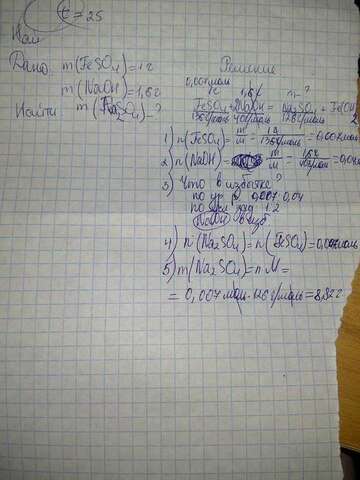 t = 25
Най
Дано: m(FeSO₄)=1г
m(NaOH)=1,6г
Найти: m(Na₂SO₄)-?
Решение
0,007моль 1,6г n-?
FeSO₄+2NaOH = Na₂SO₄ + Fe(OH)
2
1) n(FeSO₄)= m/M = = 0,007моль
2) n(NaOH)= m/M = 1,6г/40г/моль = 0,04
3) Что в избытке?
по ур. р 0,007 0,04
по усл зад 1:2
NaOH в изб
4) n(Na₂SO₄)=n(FeSO₄)=0,007моль
5) m(Na₂SO₄)=n·M=
= 0,007моль·126г/моль=8,82г